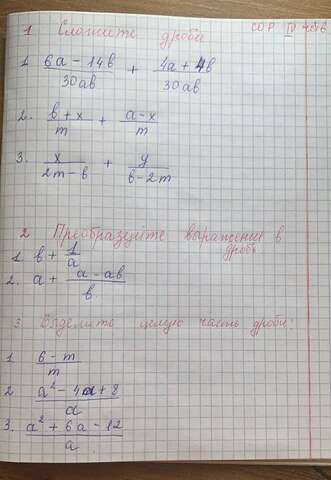 1 Сложите дроби СОР IV четв
1. 6a - 14b / 30ab + 4a + 4b / 30ab
2. b + x / m + a - x / m
3. x / 2m - b + y / b - 2m
2 Преобразуйте выражение в дробь
1. b + 1 / a
2. a + a - ab / b
3 Выделите целую часть дроби:
1 6 - m / m
2 a² - 4a + 8 / a
3. a² + 6a - 12 / a